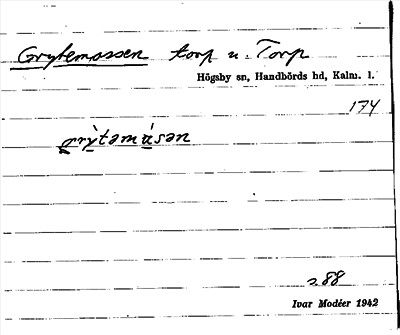 Grytemossen torp u. Torp
Högsby sn, Handbörds hd, Kalm. l.
174
grỳtəmásən
s. 88
Ivar Modéer 1942